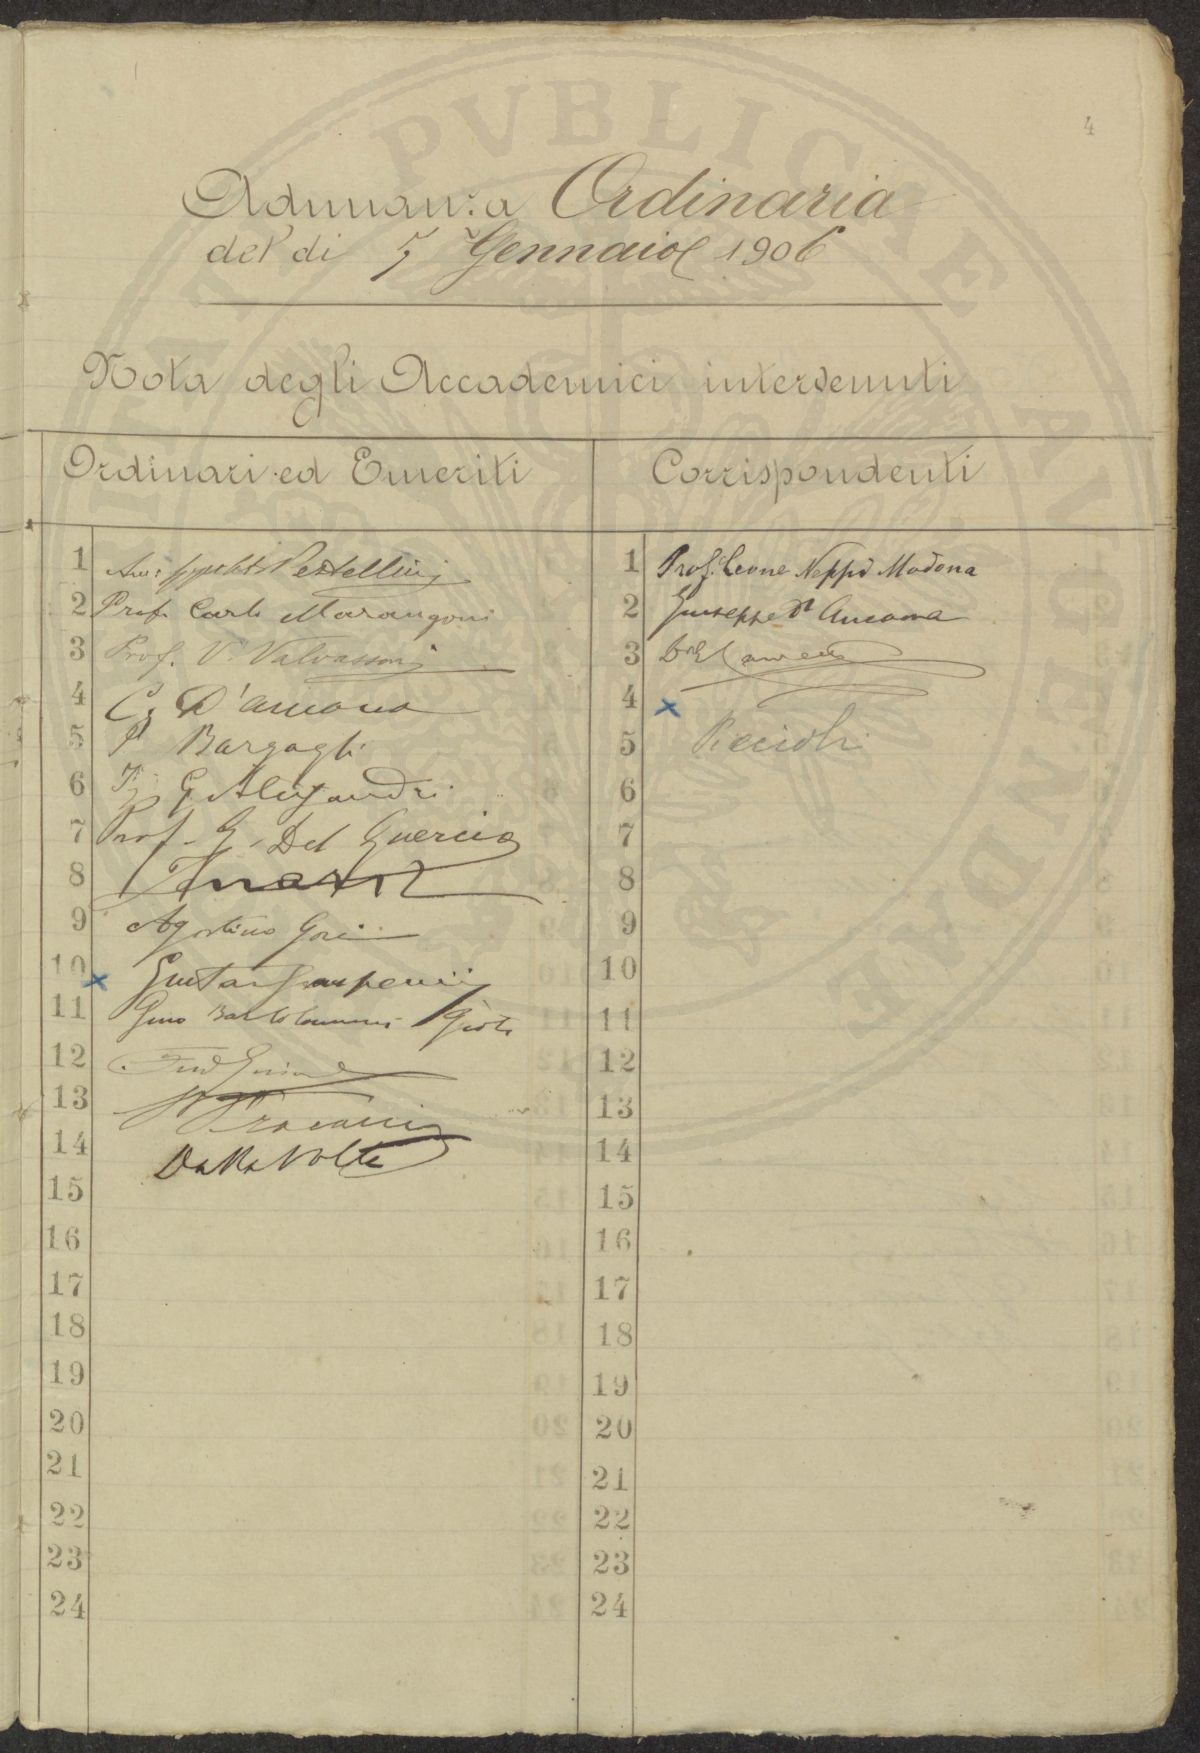 4
Adunanza Ordinaria
del dì 7 Gennaio 1906
Nota degli Accademici intervenuti
Ordinari ed Emeriti
1 Avv: Ippolito Pestellini
2 Prof. Carlo Marangoni
3 Prof. V. Valvassori
4 C. D'Ancona
5 P Bargagli
6 G Alessandri
7 Prof. G. Del Guercio
8
9 Agostino Gori
10
11 Gino Bartolommei Gioli
12
13
14 Dalla Volta
15
16
17
18
19
20
21
22
23
24
Corrispondenti
1 Prof. Leone Neppi Modona
2 Giuseppe D'Ancona
3
4
5 Piccioli
6
7
8
9
10
11
12
13
14
15
16
17
18
19
20
21
22
23
24
PVBLICAE